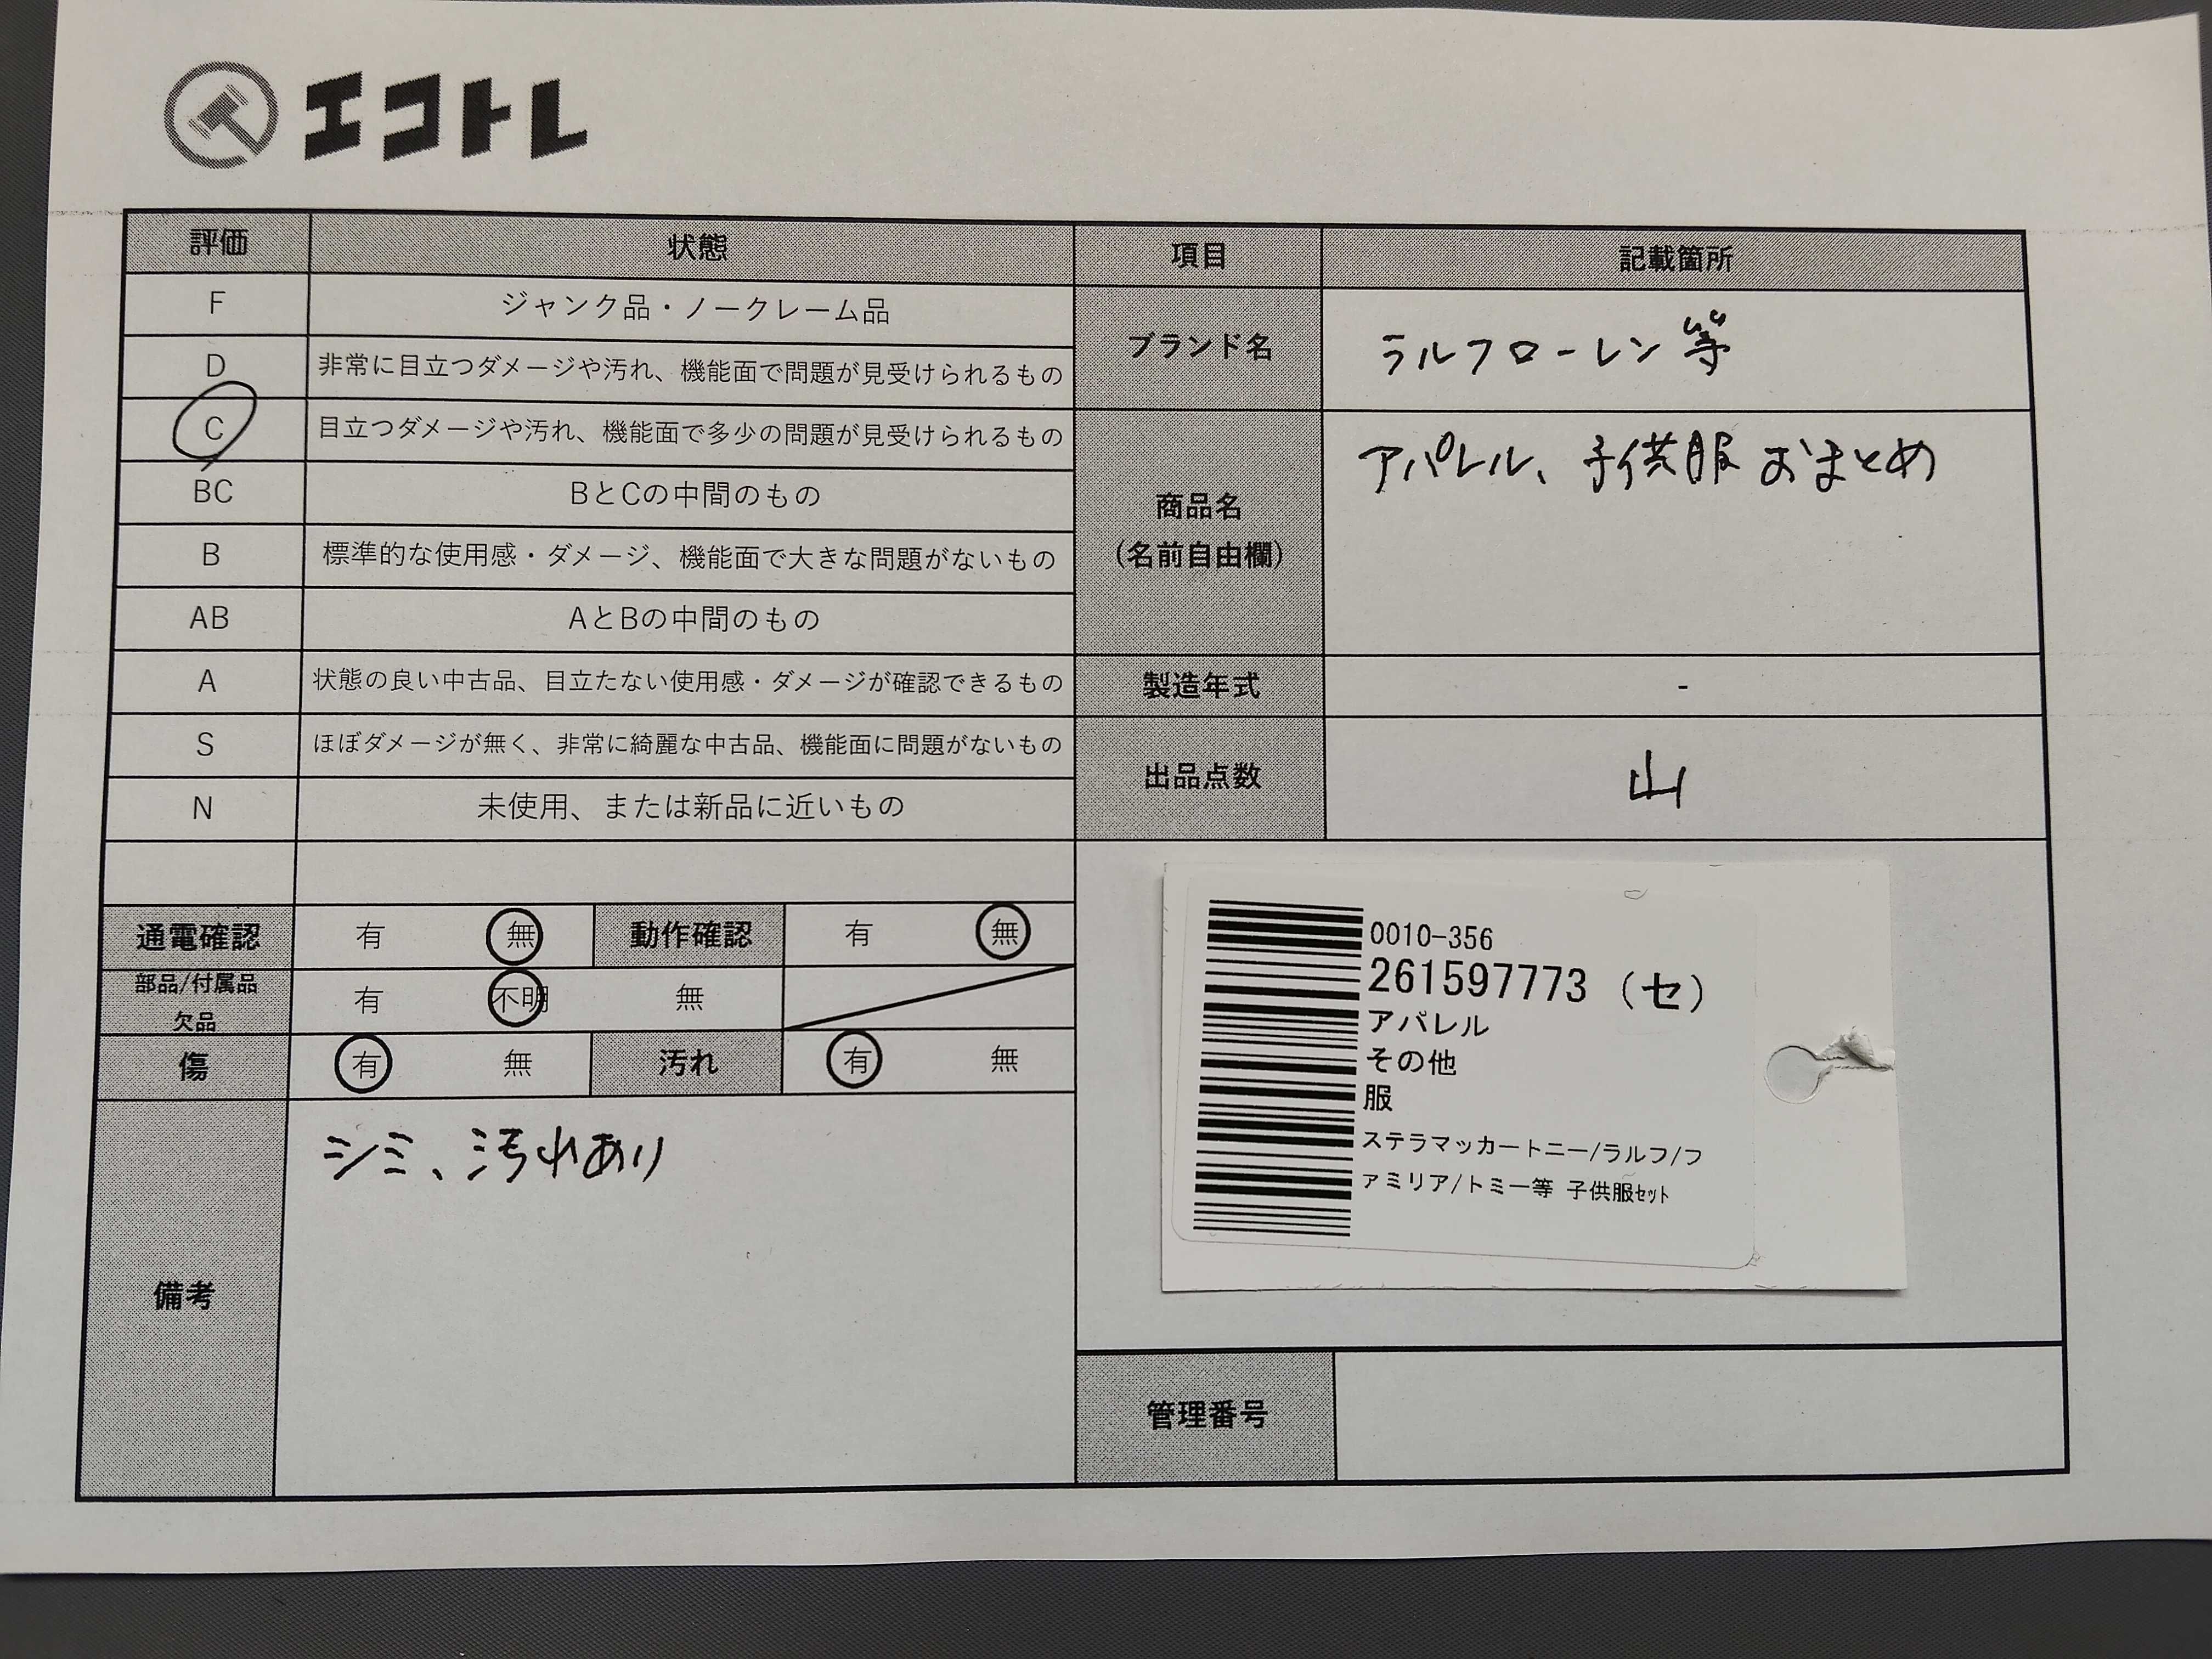 エコトレ
評価 状態 項目 記載箇所
F ジャンク品・ノークレーム品
D 非常に目立つダメージや汚れ、機能面で問題が見受けられるもの
C 目立つダメージや汚れ、機能面で多少の問題が見受けられるもの
BC BとCの中間のもの
B 標準的な使用感・ダメージ、機能面で大きな問題がないもの
AB AとBの中間のもの
A 状態の良い中古品、目立たない使用感・ダメージが確認できるもの
S ほぼダメージが無く、非常に綺麗な中古品、機能面に問題がないもの
N 未使用、または新品に近いもの
ブランド名 ラルフローレン等
商品名
(名前自由欄)
アパレル、子供服おまとめ
製造年式 -
出品点数 山
通電確認 有 無 動作確認 有 無
部品/付属品
欠品
有 不明 無
傷 有 無 汚れ 有 無
備考
シミ、汚れあり
0010-356
261597773 (セ)
アパレル
その他
服
ステラマッカートニー/ラルフ/フ
ァミリア/トミー等 子供服ｾｯﾄ
管理番号